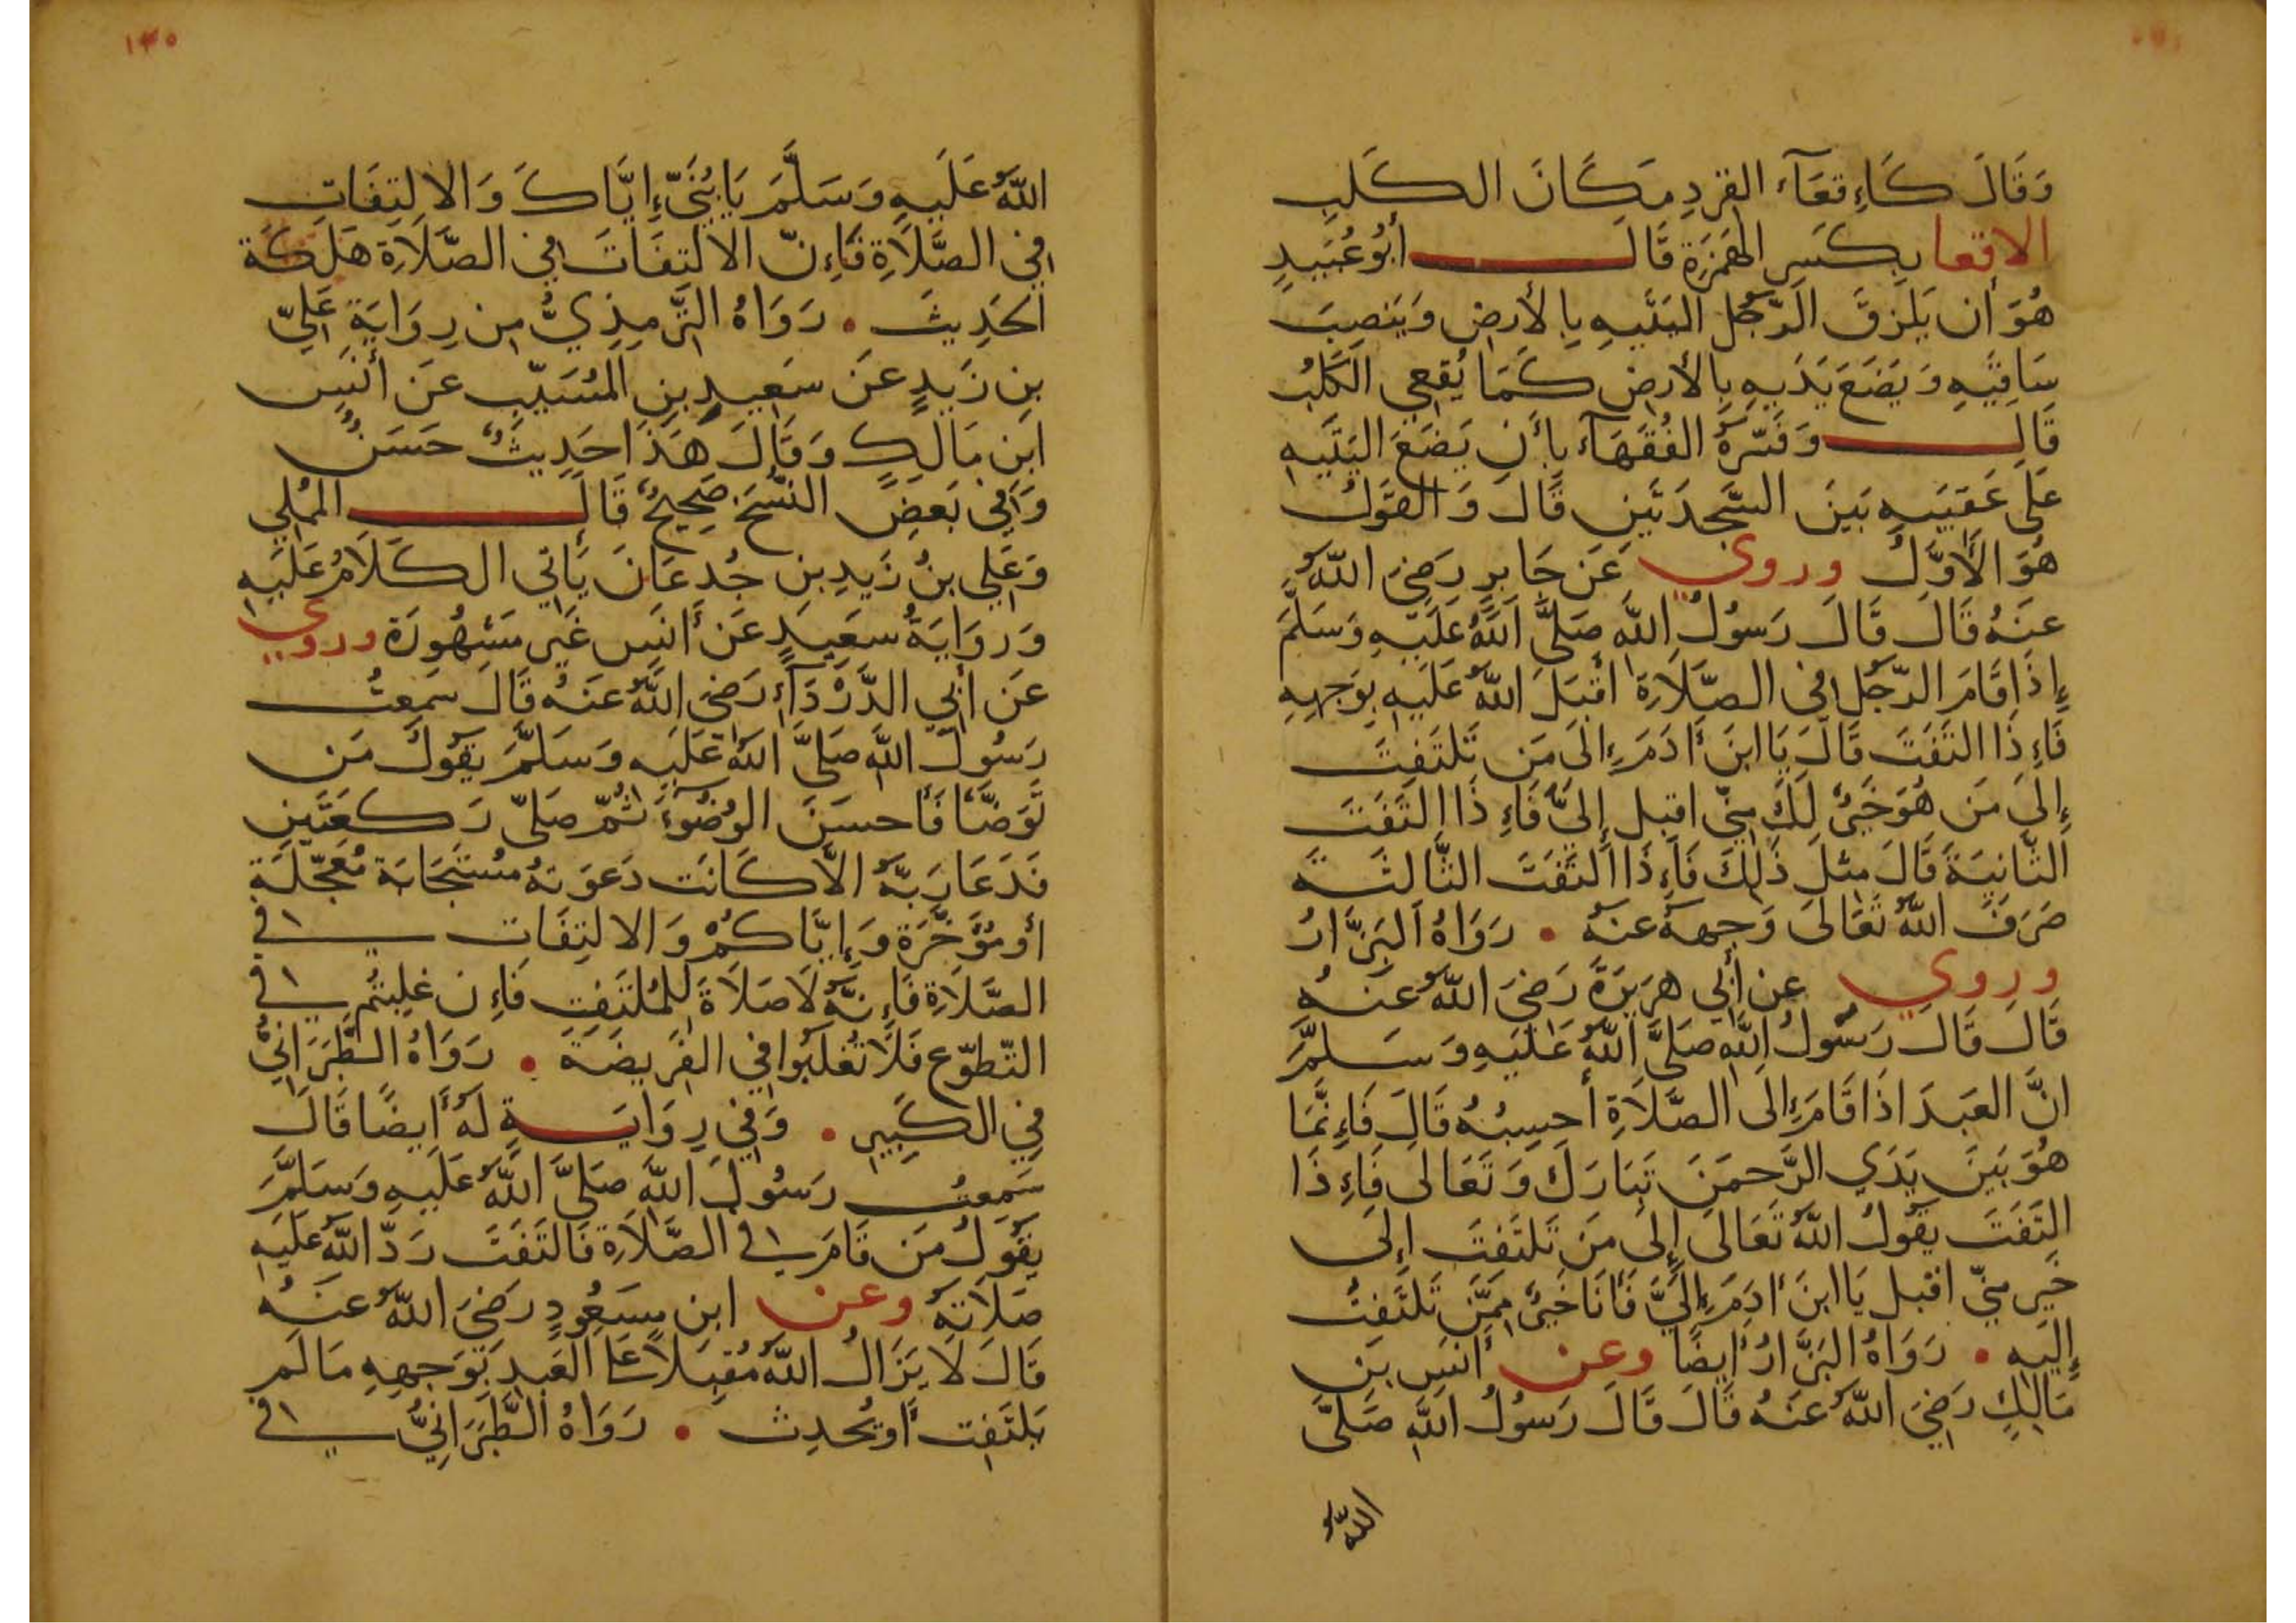 وَقَالَ كَاءِقعَآءِ القِردِ مَكَانَ الكَلبِ
الاقعا بِكَسرِ الهَمزَةِ قَالَ أبُو عُبَيدٍ
هُوَ أن يَلزقَ الرّجُل اليَتَيهِ بِالأرضِ وَيَنصِبَ
سَاقَيهِ وَيَضَعَ يَدَيهِ بِالأرضِ كَمَا يُقعِي الكَلبُ
قَالَ وَفَسّرَهُ الفُقَهَآء بِأن يَضَعَ اليَتَيهِ
عَلَى عَقِبَيهِ بَينَ السَّجدَتَينِ قَالَ وَالقَولُ
هُوَ الأَوَّلُ وروي عَن جَابِرٍ رَضِيَ اللّهُ
عَنهُ قَالَ قَالَ رَسُولُ اللّهِ صَلَّى اللّهُ عَلَيهِ وَسَلَّمَ
إِذَا قَامَ الرّجُل في الصَّلَاةِ اقبَلَ اللّهُ عَلَيهِ بِوَجهِهِ
فَاءِذَا التَفَتَ قَالَ يَا ابنَ أَدَمَ إلَى مَن تَلتَفِتَ
إِلَى مَن هُوَ خَيرٌ لَكَ مِنّي اقبل إِليّ فَاءِذَا التَفَتَ
الثّانِيَةَ قَالَ مثلَ ذَلِكَ فَاءِذَا التَفَتَ الثَّالثَة
صَرَفَ اللّهُ تَعَالَى وَجهَهُ عَنهُ . رَوَاهُ البَزَّارُ
وروي عن أبي هرَيرَةَ رَضِيَ اللّهُ عَنهُ
قَالَ قَالَ رَسُولُ اللّهِ صَلَّى اللّهُ عَلَيهِ وَسَلَّمَ
انَّ العَبدَ اذَا قَامَ إلَى الصَّلَاةِ أحسِبُهُ قَالَ فَاءِنَّمَا
هُوَ بَينَ يَدَي الرَّحمَنِ تَبَارَكَ وَتَعَالَى فَاءِذَا
التَفَتَ يَقُولُ اللّهُ تَعَالَى إِلَى مَن تَلتَفتَ إِلَى
خَيرٍ مِنّي اقبل يَا ابنَ أدَمَ إِلَيَّ فَأنَا خَيرٌ مِمَّن تَلتَفِتُ
إِلَيهِ . رَوَاهُ البَزَّارُ أيضًا وعن أنَسِ بنِ
مَالِكٍ رَضِيَ اللّهُ عَنهُ قَالَ قَالَ رَسُولُ اللّهِ صَلَّى
اللّهُ
١٣٠
اللّهُ عَلَيهِ وَسَلَّمَ يَا بُنَيّ إيَّاكَ وَالالتِفَاتِ
في الصَّلَاةِ فَاءِنّ الالتِفَاتَ في الصَّلَاةِ هَلَكَة
الحَدِيثَ . رَوَاهُ التِّرمِذِيُّ مِن رِوَايَةِ عَلِيّ
بنِ زَيدٍ عَن سَعِيدِ بنِ المُسَيّبِ عَن أنَسِ
ابنِ مَالِكٍ وَقَالَ هَذَا حَدِيثٌ حَسَنٌ
وَفي بَعضِ النُّسَخِ صَحِيحٌ قَالَ المُملِي
وَعَلِي بنُ زَيدِ بنِ جُدعَانَ يَأتي الكَلَامُ عَلَيهِ
وَرِوَايَةُ سعِيدٍ عَن أنَسٍ غَير مَشهُورَة وروي
عَن أبي الدَّرْدَآءِ رَضِيَ اللّهُ عَنهُ قَالَ سَمِعتُ
رَسُولَ اللّهِ صَلَّى اللّهُ عَلَيهِ وَسَلَّمَ يَقُولُ مَن
تَوَضَّأ فَأحسَنَ الوُضُوءَ ثُمّ صَلّى رَكعَتَينِ
فَدَعَا رَبَّهُ الاَّ كَانَت دَعوَتهُ مُستَجَابَة مُعَجّلَة
أو مُؤَخَّرَة وَإيَّاكُمْ وَالالتِفَات في
الصَّلَاةِ فَاءِنَّهُ لَا صَلَاةَ لِلمُلتَفِتِ فَاءِن غلِبتُم في
التّطوّعِ فَلَا تُغلَبُوا في الفَرِيضَة . رَوَاهُ الطَّبَرَانِيُّ
فِي الكَبِيرِ . وَفي رِوَايَةٍ لَهُ أيضًا قَالَ
سَمِعتُ رَسُولَ اللّهِ صَلَّى اللّهُ عَلَيهِ وَسَلَّمَ
يَقُولُ مَن قَامَ في الصَّلَاةِ فَالتَفَتَ رَدّ اللّهُ عَلَيهِ
صَلَاتَهُ وعن ابن مسَعُودٍ رَضِيَ اللّهُ عَنهُ
قَالَ لَا يَزَالُ اللّهُ مُقبِلًا عَلَى العَبدِ بِوَجهِهِ مَا لَم
يَلتَفِت أو يُحدِث . رَوَاهُ الطَّبَرَانِيُّ في